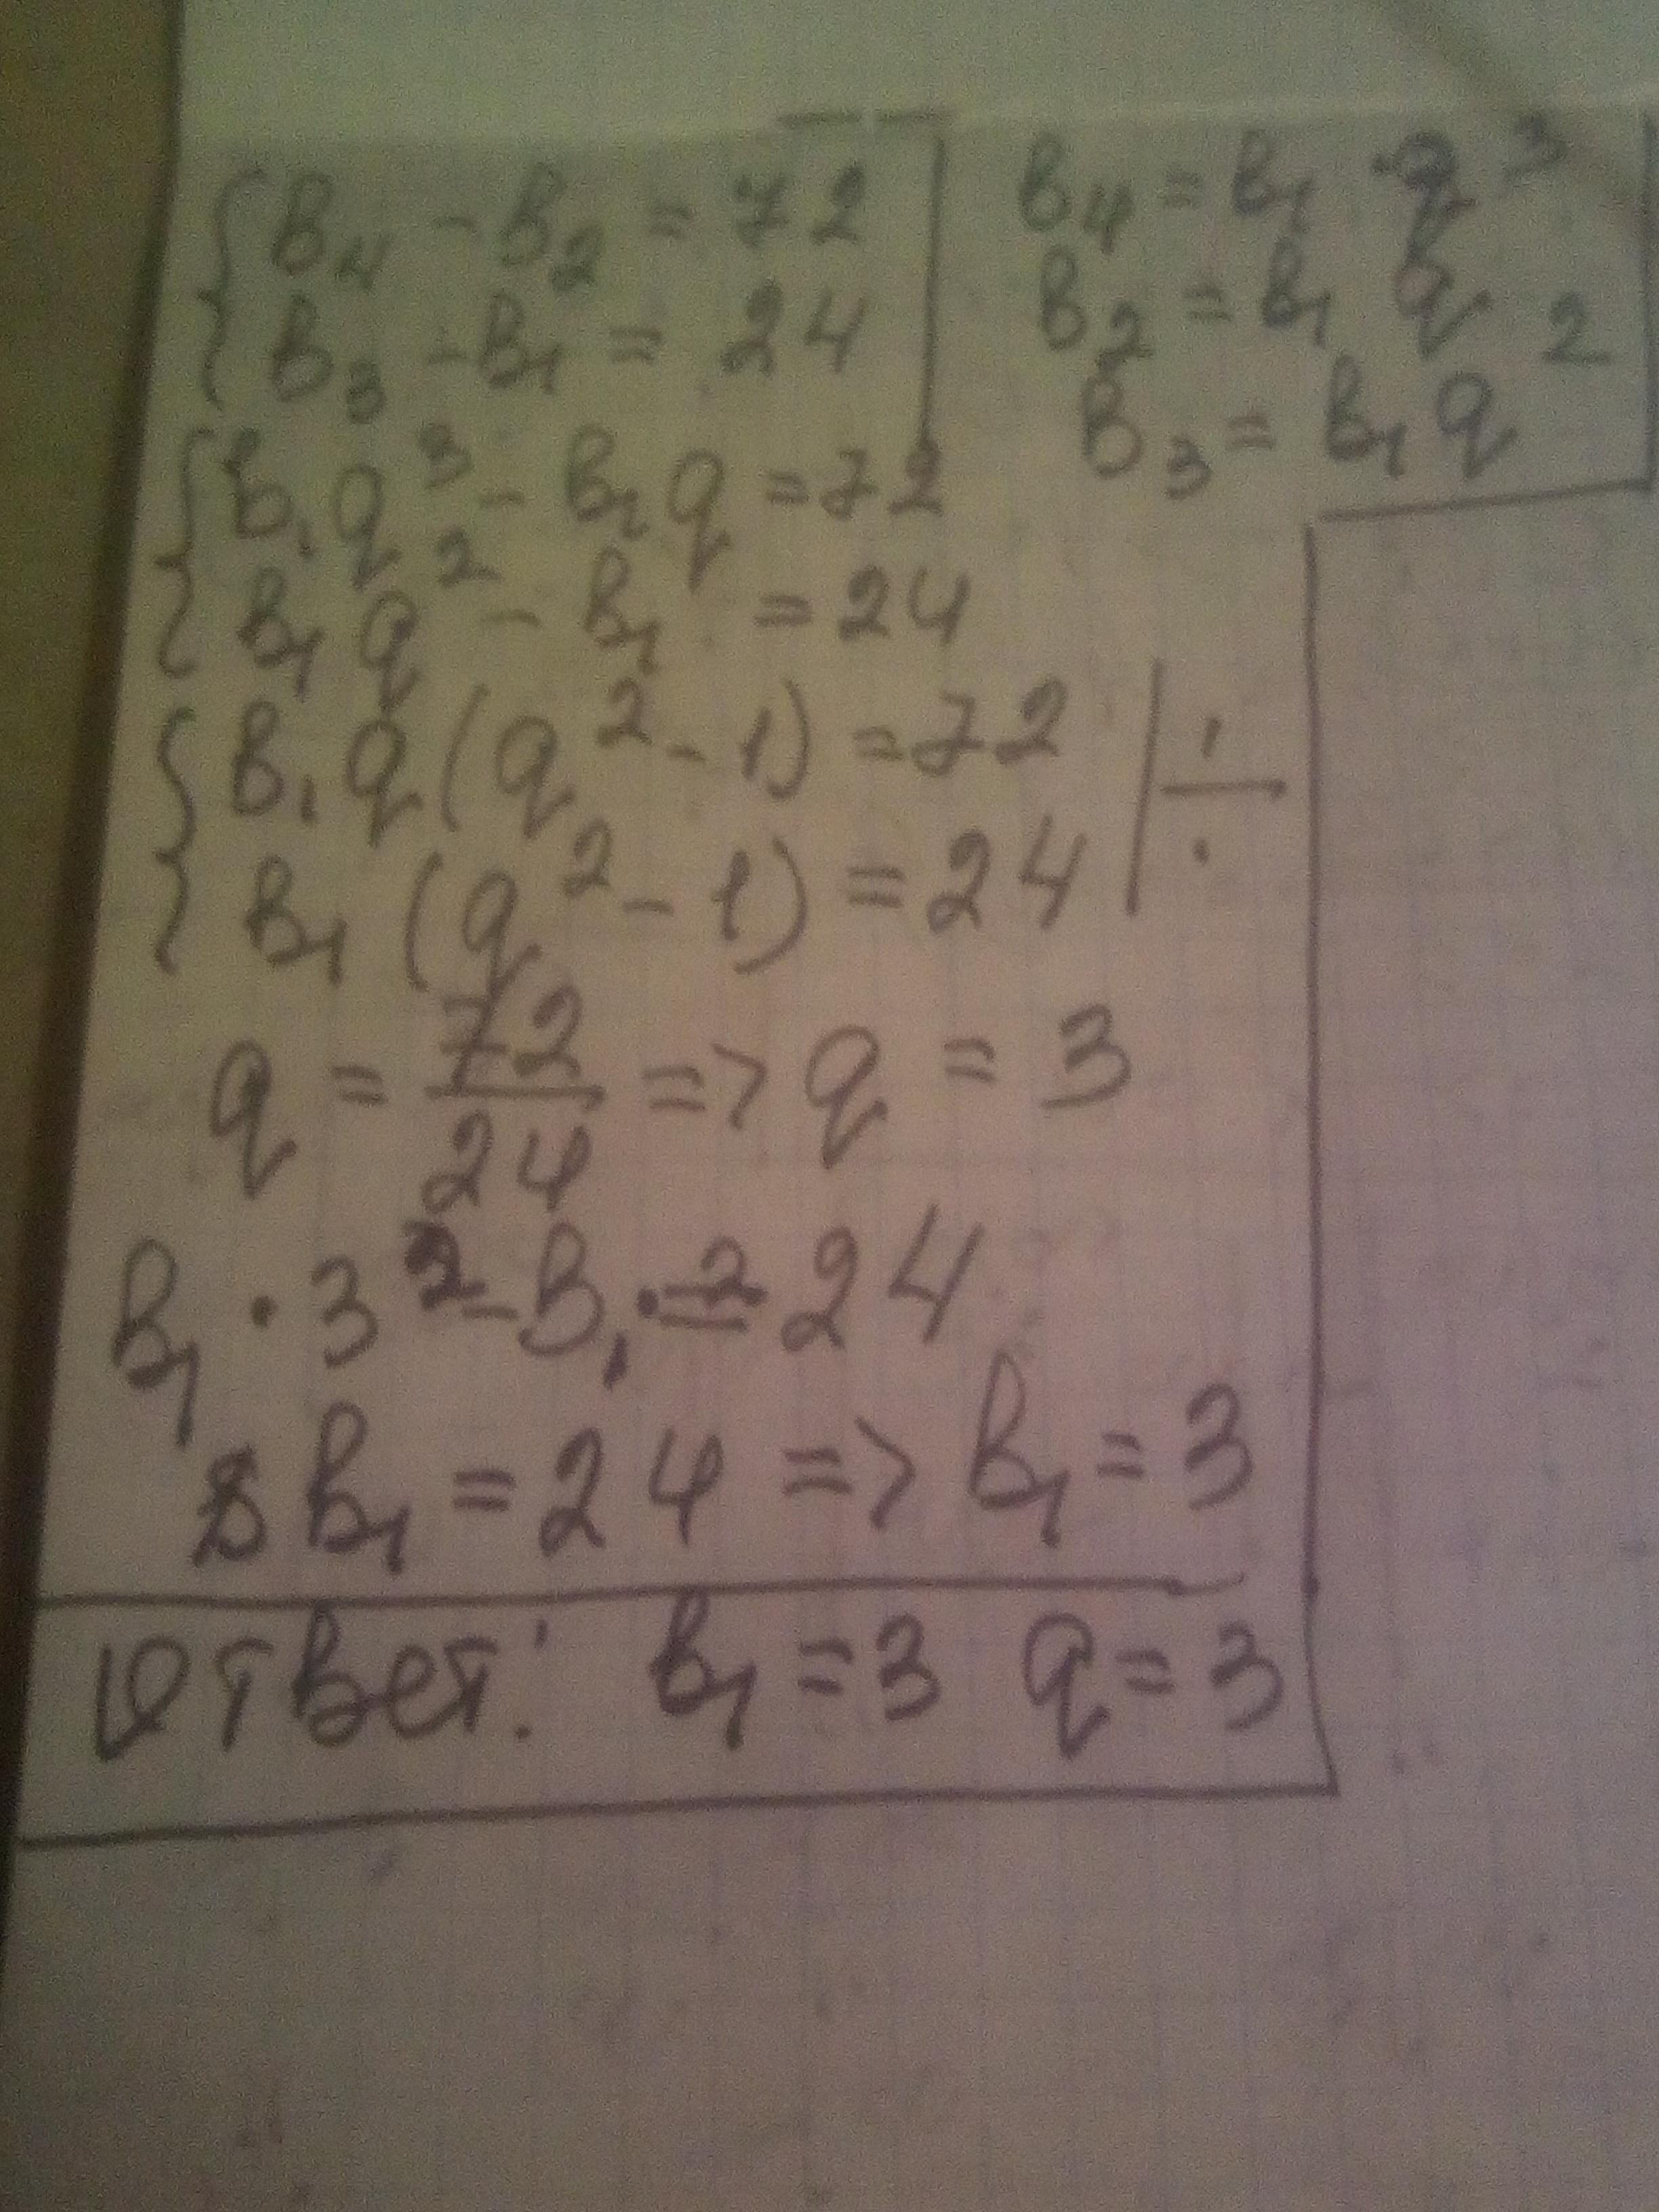 { B₄ - B₂ = 72
{ B₃ - B₁ = 24
B₄ = B₁ · q³
B₂ = B₁ q
B₃ = B₁ q²
{ B₁q³ - B₁q = 72
{ B₁q² - B₁ = 24
{ B₁q(q² - 1) = 72 | ÷
{ B₁(q² - 1) = 24
q = 72/24 => q = 3
B₁ · 3² - B₁ = 24
8B₁ = 24 => B₁ = 3
Ответ: B₁ = 3 q = 3